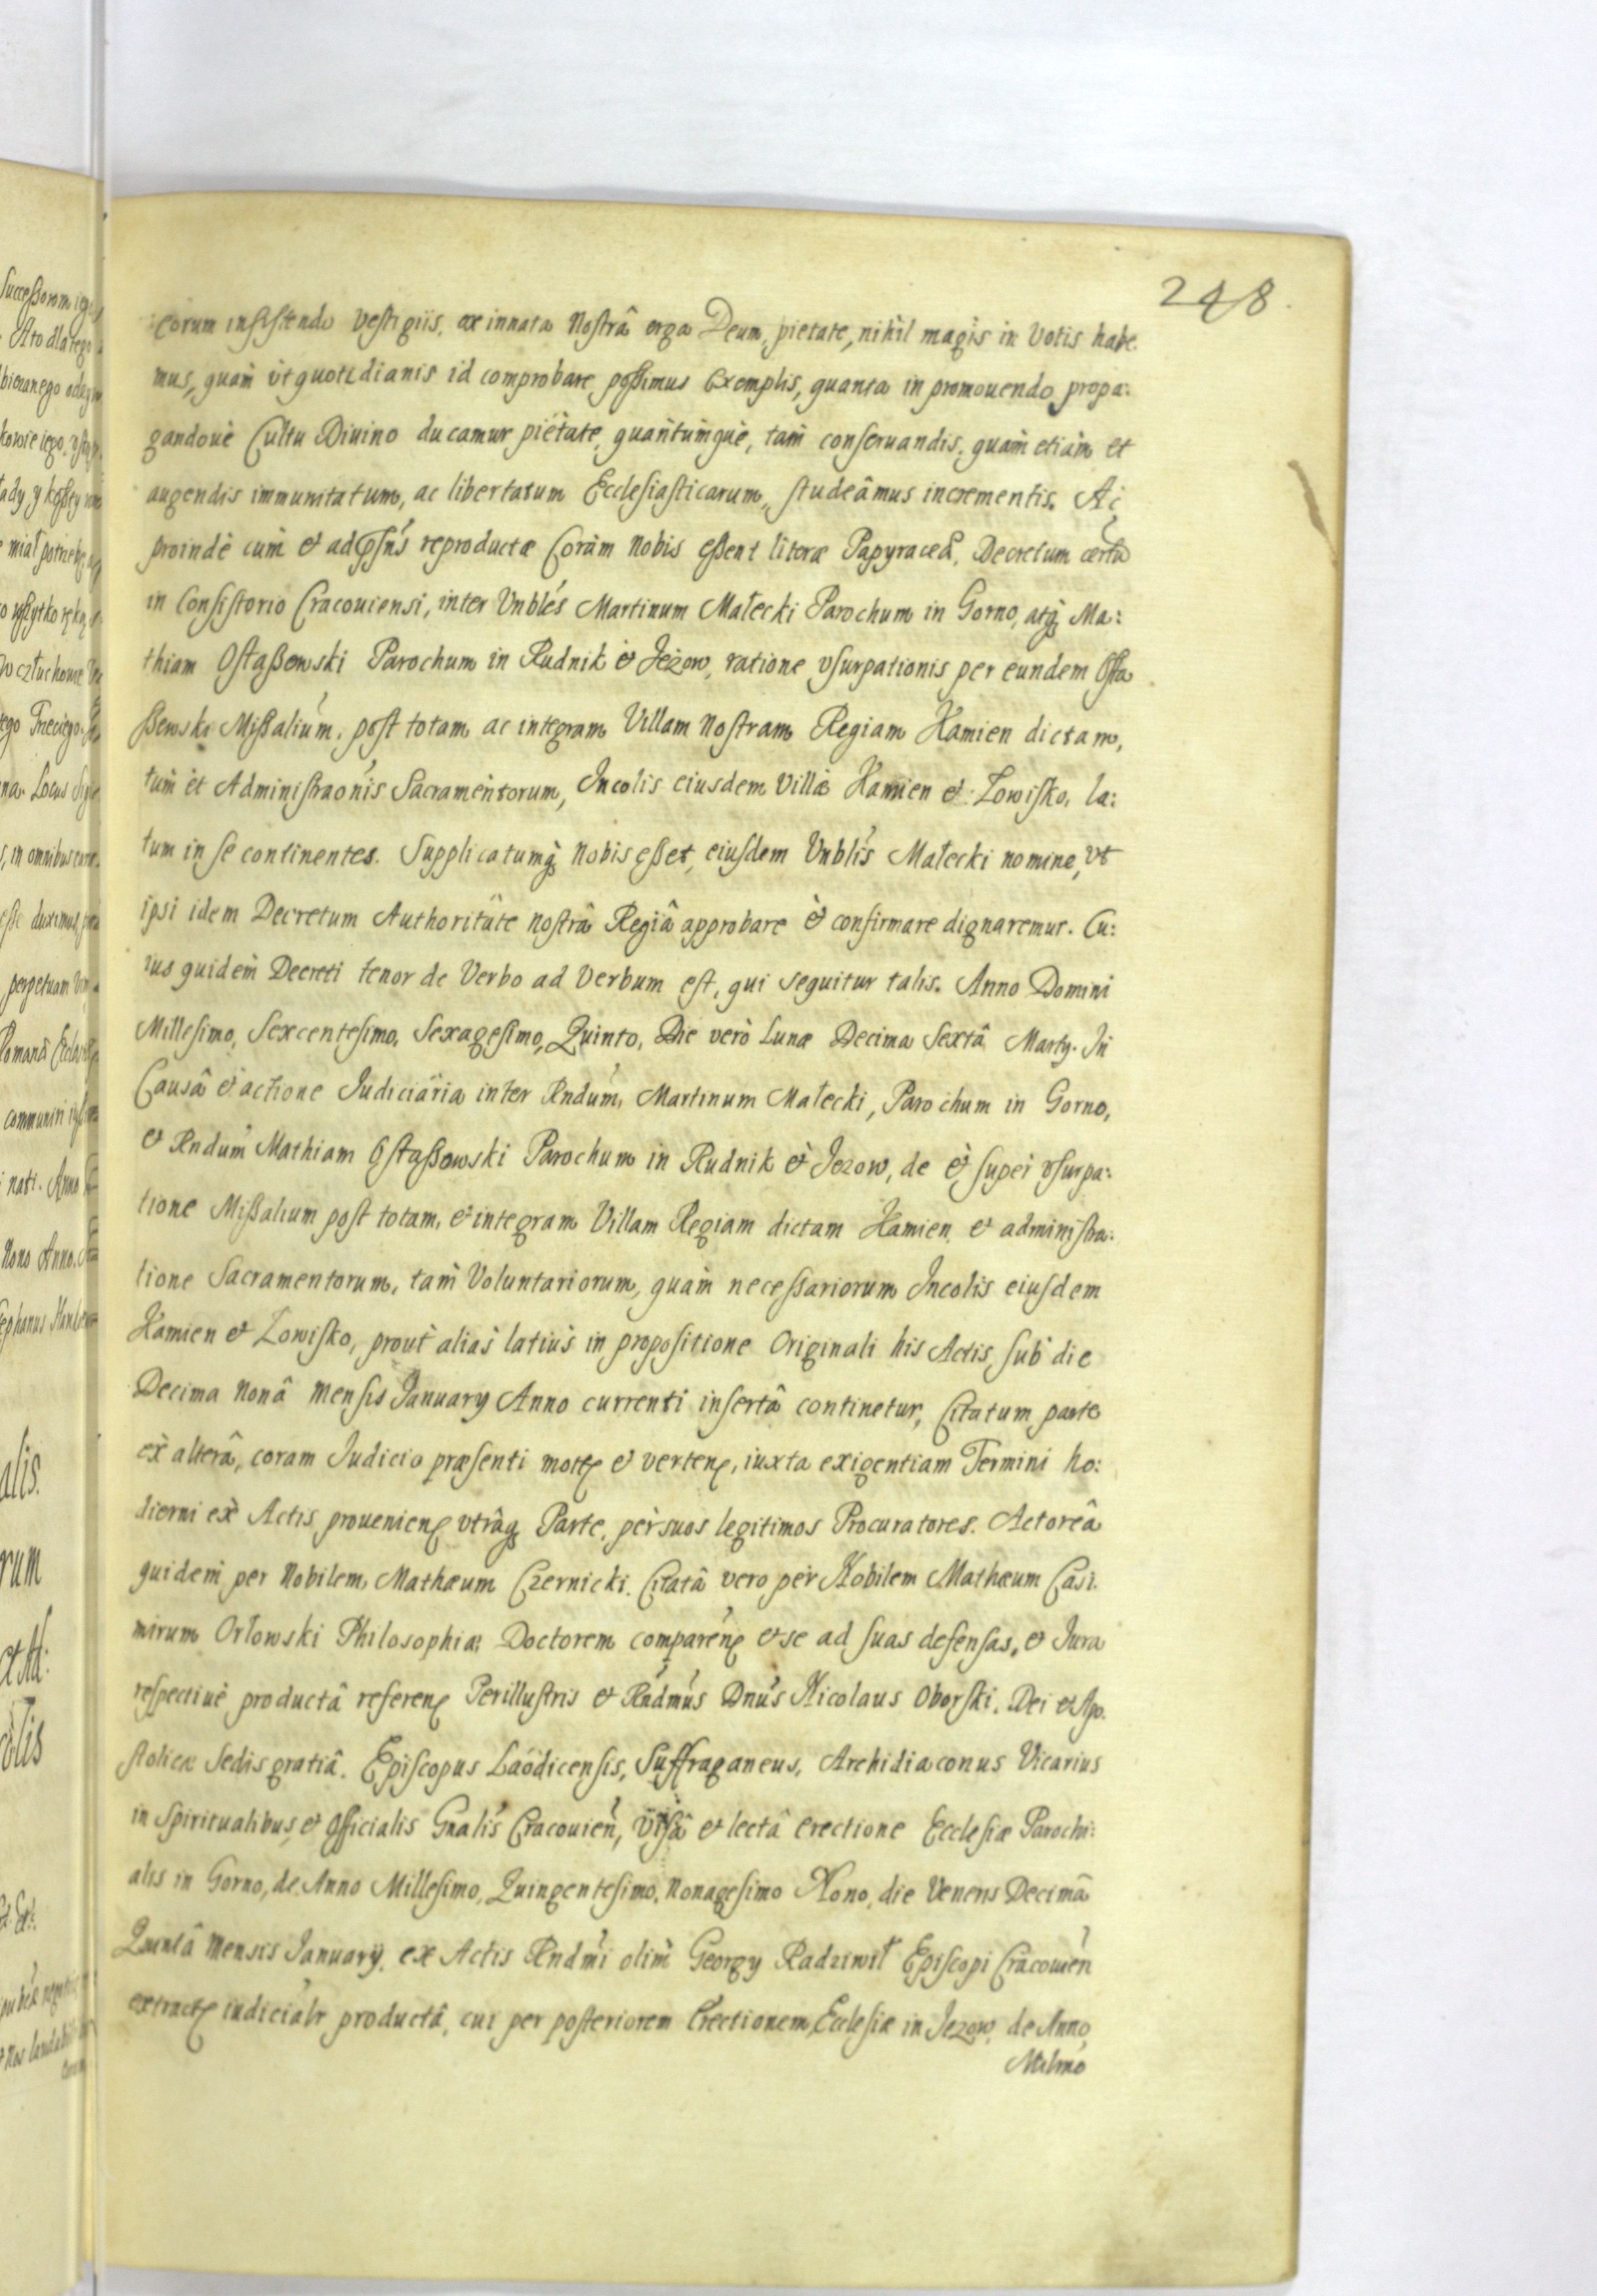 248
eorum insistendo vestigiis, ex innata Nostrâ erga Deum, pietate, nihil magis in Votis habe
mus, quam vt quotidianis id comprobare possimus Exemplis, quanta in promouendo propa:
gandouè Cultu Diuino ducamur piëtate, quantumquè, tam conseruandis, quam etiàm et
augendis immunitatum, ac libertatum Ecclesiasticarum, studeâmus incrementis. Ac
proindè cum et ad reproductæ Coràm Nobis essent literæ Papyraceæ, Decretum
in Consistorio Cracouiensi, inter Vnblés Martinum Małecki Parochum in Gorno, atq Ma:
thiam Ostaßewski Parochum in Rudnik et Jeżow, ratione vsurpationis per eundem Osta
ßewski Mißalium, post totam, ac integram Villam Nostram Regiam Kamien dictam,
tùm et Administraonis Sacramentorum, Incolis eiusdem Villæ Kamien et Łowisko, la:
tum in se continentes. Supplicatumq Nobis eßet, eiusdem Vnblis Małecki nomine, vt
ipsi idem Decretum Authoritâte nostrâ Regiâ approbare et confirmare dignaremur. Cu:
ius quidem Decreti tenor de Verbo ad Verbum est, qui sequitur talis. Anno Domini
Millesimo, Sexcentesimo, Sexagesimo, Quinto, Die verò Lunæ Decima Sextâ Marty. In
Causâ et actione Iudiciaria inter Rndum, Martinum Małecki, Parochum in Gorno,
et Rndum Mathiam Ostaßowski Parochum in Rudnik et Jezow, de et super vsurpa:
tione Mißalium post totam, et integram Villam Regiam dictam Kamien, et administra:
tione Sacramentorum, tam Voluntariorum, quam neceßariorum Incolis eiusdem
Kamien et Łowisko, prout aliàs latiùs in propositione Originali his Actis, sub die
Decima Nonâ Mensis January Anno currenti insertâ continetur, Citatum parte
ex alterâ, coram Iudicio præsenti mott et verten, iuxta exigentiam Termini ho:
dierni ex Actis prouenien vtrâq Parte, per suos legitimos Procuratores. Actoreâ
quidem per Nobilem Mathæum Czernicki. Citatâ vero per Nobilem Mathæum Casi.
mirum Orłowski Philosophiæ Doctorem comparen et se ad suas defensas, et Iura
respectiuè productâ referen Perillustris et Rndmus Dnus Nicolaus Oborski. Dei et Apo.
stolicæ Sedis gratiâ. Episcopus Laodicensis, Suffraganeus, Archidiaconus Vicarius
in Spiritualibus, et Officialis Gnalis Cracouien, Visâ et lectâ Erectione Ecclesiæ Parochi:
alis in Gorno, de Anno Millesimo, Quingentesimo, Nonagesimo Nono, die Veneris Decimâ
Quintâ Mensis January, ex Actis Rndmi olim Georgy Radziwił Episcopi Cracouien
extract iudicialr productâ, cui per posteriorem Erectionem, Ecclesiæ in Jezow, de Anno
Mulmo